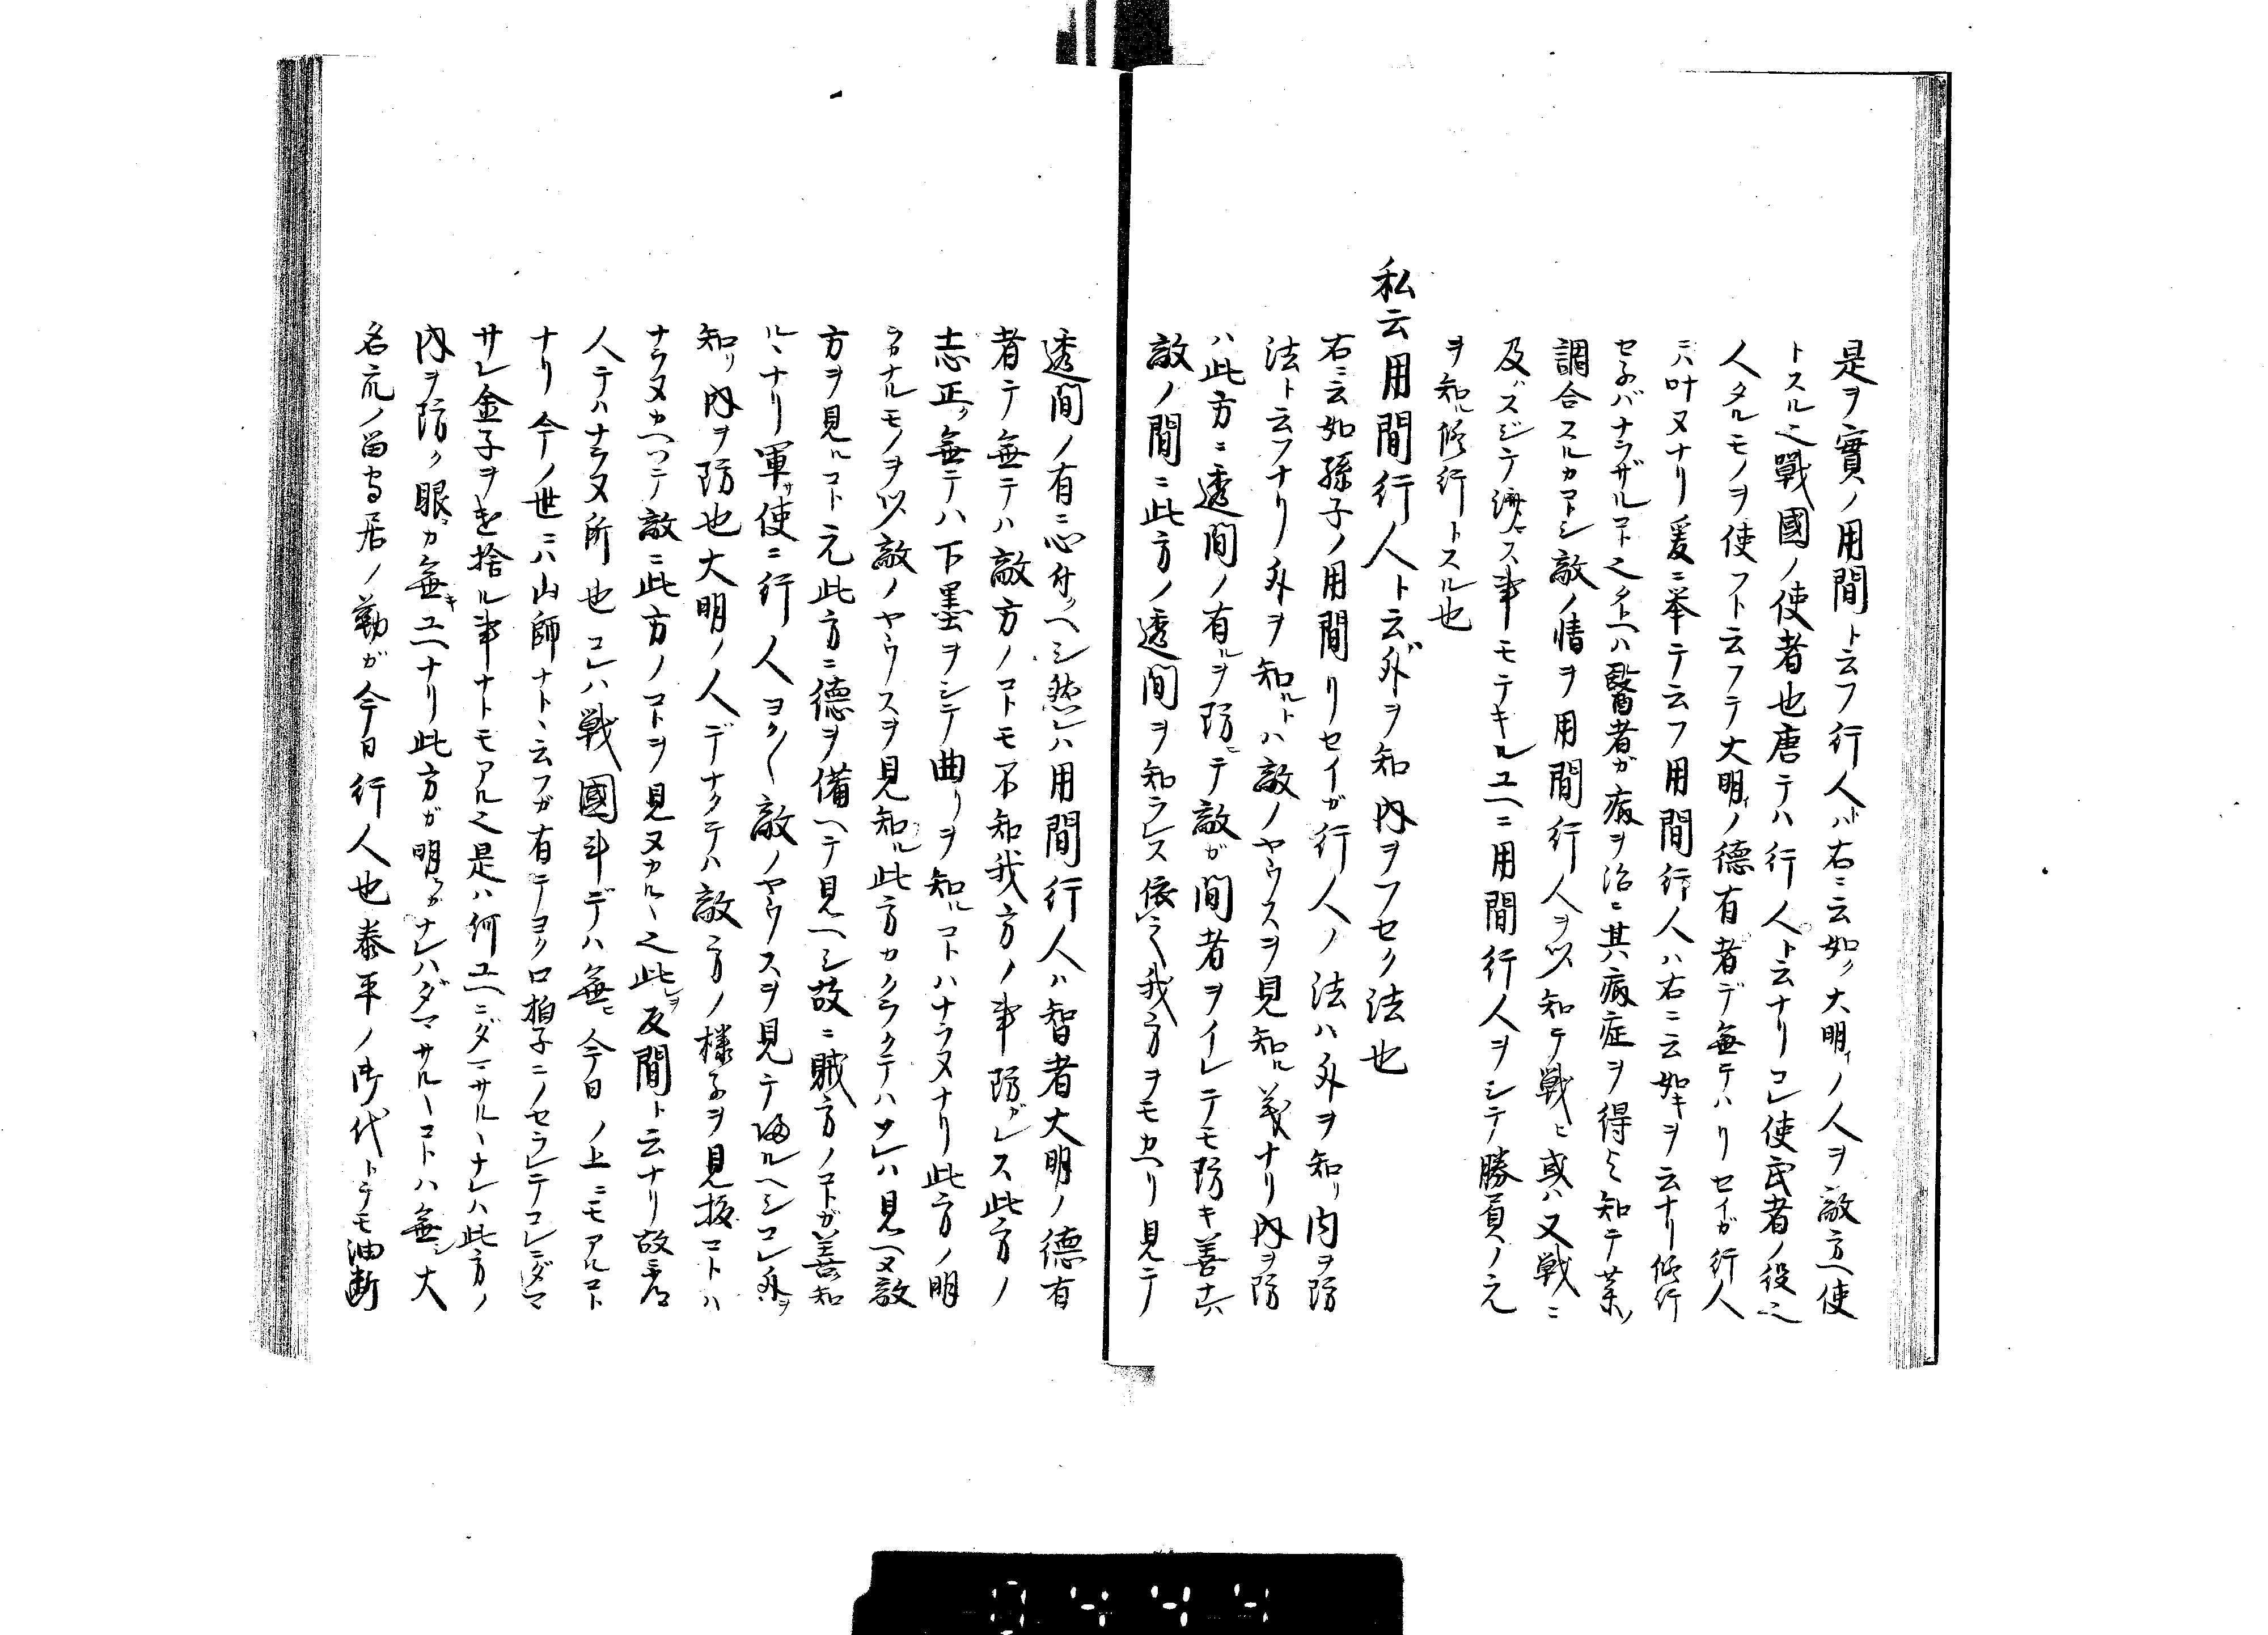 是ヲ實ノ用間ト云フ行人ハ右ニ云如ク大明ノ人ヲ敵方ヘ使
トスル之戰國ノ使者也唐テハ行人ト云ナリコレ使武者ノ役之
人タルモノヲ使フト云フテ大明イノ德有者デ無テハリセイガ行人
ニハ叶ヌナリ爰ニ挙テ云フ用間行人ハ右ニ云如キヲ云ナリ修行
セネバナラザルコト之タトヘハ醫者ガ病ヲ治ニ其病症ヲ得ト知テ薬ノ
調合スルカコトシ敵ノ情ヲ用間行人ヲ以知テ戦ヒ或ハ又戦ニ
及ハスジテ濟マス事モテキルユヘニ用間行人ヲシテ勝負ノ元
ヲ知ル修行トスル也
私云用間行人ト云ガ外ヲ知内ヲフセク法也
右ニ云如孫子ノ用間リセイガ行人ノ法ハ外ヲ知リ内ヲ防
法ト云フナリ外ヲ知ルトハ敵ノヤウスヲ見知ル義ナリ内ヲ防
ハ此方ニ透間ノ有ルヲ防ニテ敵ガ間者ヲイレテモ防キ善ケレハ
敵ノ間ニ此方ノ透間ヲ知ラレス依之我方ヲモカヘリ見テ
透間ノ有ニ心付クヘシ然レハ用間行人ハ智者大明ノ德有
者テ無テハ敵方ノコトモ不知我方ノ事防ガレス此方ノ
志正ク無テハ下墨ヲシテ曲リヲ知ルコトハナラヌナリ此方ノ明
ラカナルモノヲ以敵ノヤウスヲ見知ル此方カクラクテハサレハ見ヘヌ敵
方ヲ見ルコト元此方ニ德ヲ備ヘテ見ヘシ故ニ賊方ノコトガ善知
ルヽナリ軍サ使ニ行人ヨク〱敵ノヤウスヲ見テ帰ルヘシコレ外ヲ
知リ内ヲ防也大明ノ人デナクテハ敵方ノ様子ヲ見扱コトハ
ナラヌカヘツテ敵ニ此方ノコトヲ見ヌカルヽ之此ヲ反間ト云ナリ故ニ
人テハナラヌ所也コレハ戦國斗デハ無ヒ今日ノ上ニモアルコト
ナリ今ノ世ニハ山師ナトヽ云フガ有テヨク口拍子ニノセラレテコレニダマ
サレ金子ヲ捨ル事ナトモアル之是ハ何ユヘニダマサルヽナレハ此方ノ
内ヲ防ク眼カ無キユヘナリ此方ガ明ラカナレハダマサルヽコトハ無シ大
名ノ留守居ノ勤ガ今日行人也泰平ノ御代トテモ油断